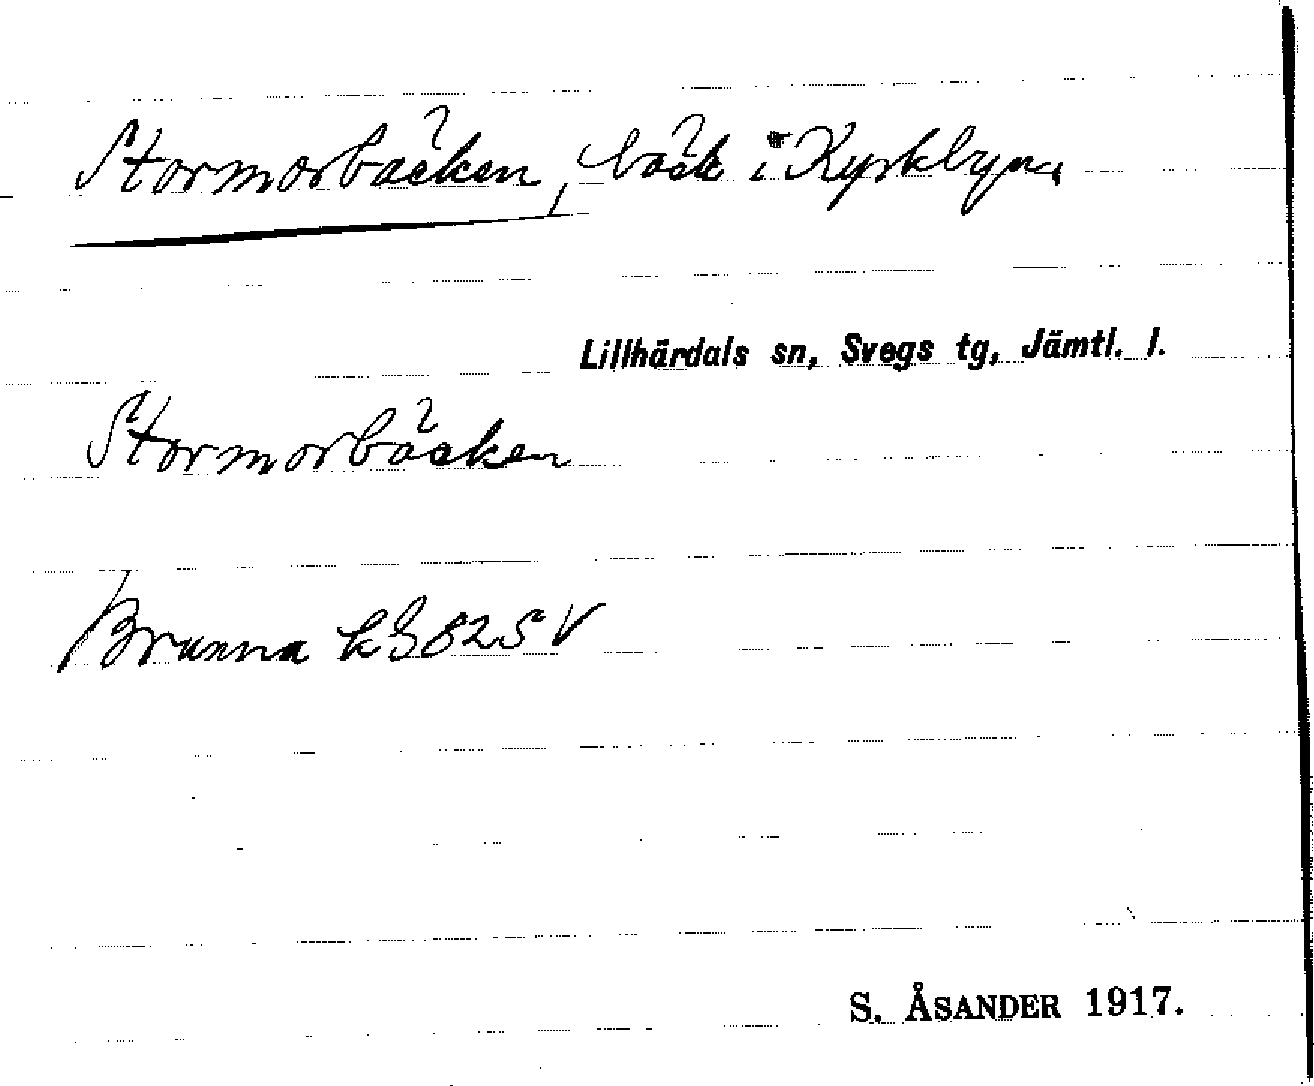 Stormorbäcken, bäck i Kyrkbyn
Lillhärdals sn, Svegs tg, Jämtl. l.
Stormorbäcken
Brunna k 3825 V
S. ÅSANDER 1917.